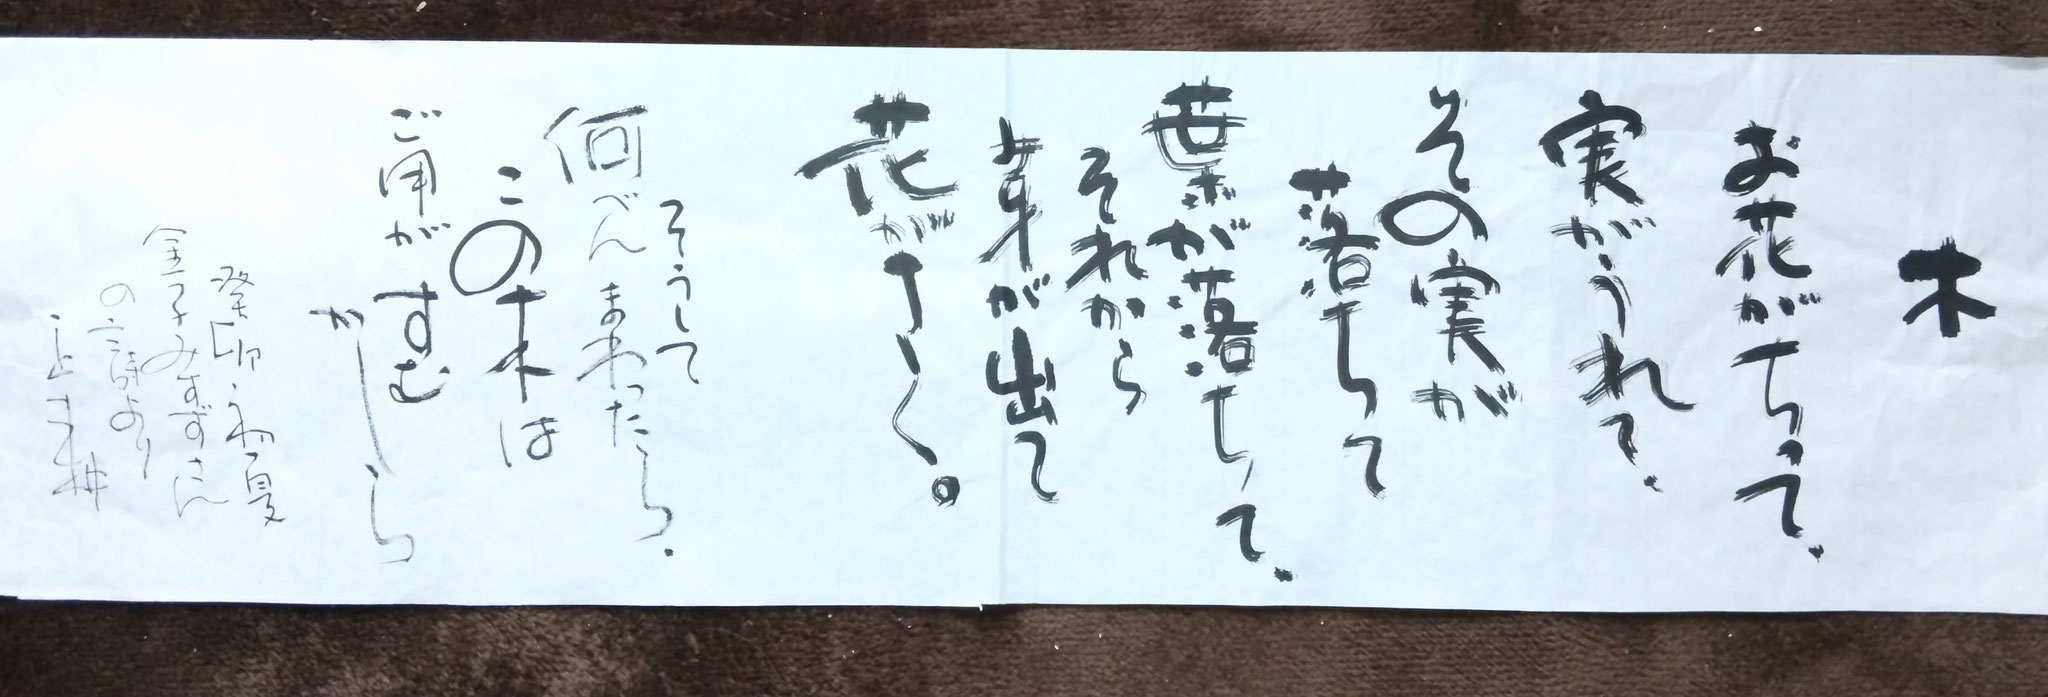 木
お花がちって、
実がうれて、
その実が
落ちて
葉が落ちて、
それから
芽が出て
花がさく。
そうして
何べんまわったら、
この木は
ご用がすむ
かしら
癸卯 初夏
金子みすずさん
の詩より